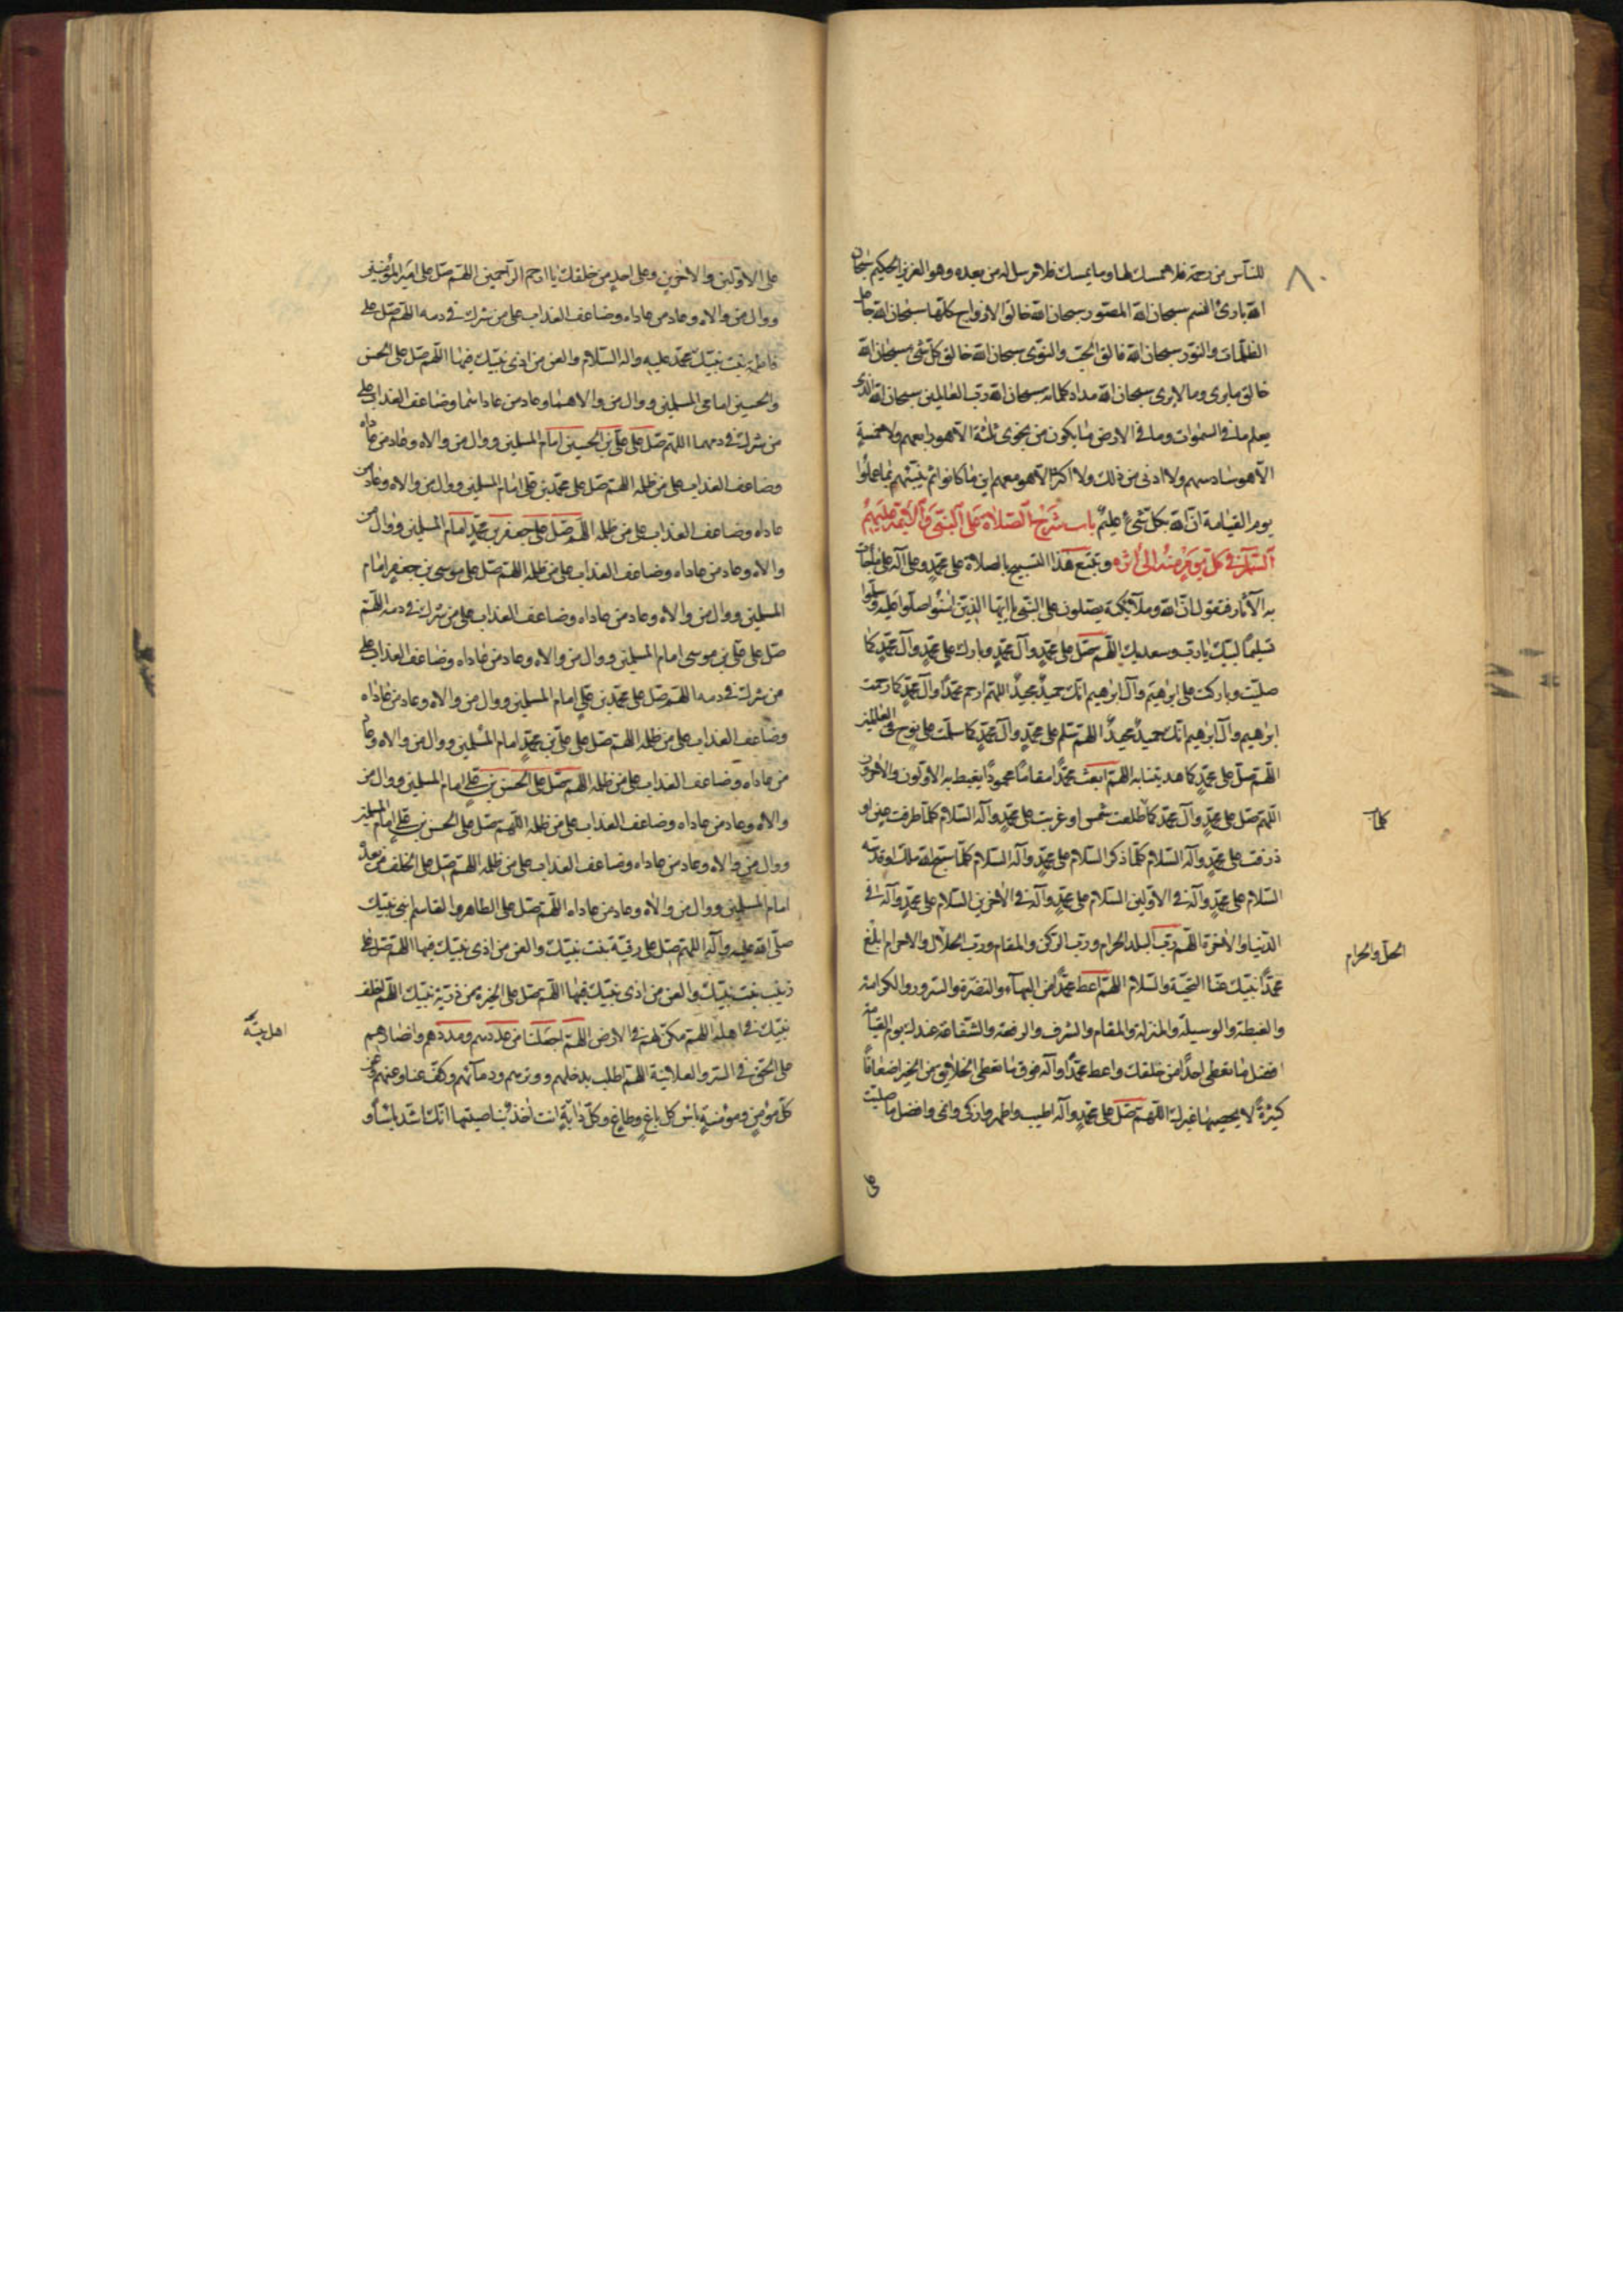 ٨٠
للناس من رحمة فلا ممسك لها وما يمسك فلا مرسل له من بعده وهو العزيز الحكيم سبحان
الله بارئ النسم سبحان الله المصور سبحان الله خالق الازواج كلها سبحان الله جاعل
الظلمات والنور سبحان الله فالق الحب والنوى سبحان الله خالق كل شئ سبحان الله
خالق ما يرى وما لا يرى سبحان الله مداد كلماته سبحان الله رب العالمين سبحان الله الذى
يعلم ما فى السموات وما فى الارض ما يكون من نجوى ثلثة الا هو رابعهم ولا خمسة
الا هو سادسهم ولا ادنى من ذلك ولا اكثر الا هو معهم اين ما كانوا ثم ينبئهم بما عملوا
يوم القيامة ان الله بكل شئ عليم باب شرح الصلاة على النبى والائمة عليهم
السلام فى كل يوم منه الى اخره وتتبع هذا التسبيح بالصلاة على محمد وعلى آله على ما جاءت
به الآثار فتقول ان الله وملآئكته يصلون على النبى يا ايها الذين امنوا صلوا عليه وسلموا
تسليما لبيك يا رب وسعديك اللهم صل على محمد وآل محمد وبارك على محمد وآل محمد كما
صليت وباركت على ابرهيم وآل ابرهيم انك حميد مجيد اللهم ارحم محمدا وآل محمد كما رحمت
ابرهيم وآل ابرهيم انك حميد مجيد اللهم سلم على محمد وآل محمد كما سلمت على نوح فى العالمين
اللهم صل على محمد كما هديتنا به اللهم ابعث محمدا مقاما محمودا يغبطه به الاولون والاخرون
اللهم صل على محمد وآل محمد كلما طلعت شمس او غربت على محمد وآله السلام كلما طرفت عين او
كلما
ذرفت على محمد وآله السلام كلما ذكر السلام على محمد وآله السلام كلما سبح الله ملك او قدسه
السلام على محمد وآله فى الاولين السلام على محمد وآله فى الاخرين السلام على محمد وآله فى
الدنيا والاخرة اللهم رب البلد الحرام ورب الركن والمقام ورب الحلال والاحرام ابلغ
الحل والحرام
محمدا نبيك عنا التحية والسلام اللهم اعط محمدا من البهآء والنضرة والسرور والكرامة
والغبطة والوسيلة والمنزلة والمقام والشرف والرفعة والشفاعة عندك يوم القيامة
افضل ما تعطى احدا من خلقك واعط محمدا وآله فوق ما تعطى الخلائق من الخير اضعافا
كثيرة لا يحصيها غيرك اللهم صل على محمد وآله اطيب واطهر وازكى وانمى وافضل ما صليت
على
على الاولين والاخرين وعلى احد من خلقك يا ارحم الراحمين اللهم صل على امير المؤمنين
ووال من والاه وعاد من عاداه وضاعف العذاب على من شرك فى دمه اللهم صل على
فاطمة بنت نبيك محمد عليه وآله السلام والعن من اذى نبيك فيها اللهم صل على الحسن
والحسين امامى المسلمين ووال من والاهما وعاد من عاداهما وضاعف العذاب على
من شرك فى دمهما اللهم صل على على بن الحسين امام المسلمين ووال من والاه وعاد من عاداه
وضاعف العذاب على من ظلمه اللهم صل على محمد بن على امام المسلمين ووال من والاه وعاد من
عاداه وضاعف العذاب على من ظلمه اللهم صل على جعفر بن محمد امام المسلمين ووال من
والاه وعاد من عاداه وضاعف العذاب على من ظلمه اللهم صل على موسى بن جعفر امام
المسلمين ووال من والاه وعاد من عاداه وضاعف العذاب على من شرك فى دمه اللهم
صل على على بن موسى امام المسلمين ووال من والاه وعاد من عاداه وضاعف العذاب على
من شرك فى دمه اللهم صل على محمد بن على امام المسلمين ووال من والاه وعاد من عاداه
وضاعف العذاب على من ظلمه اللهم صل على على بن محمد امام المسلمين ووال من والاه وعاد
من عاداه وضاعف العذاب على من ظلمه اللهم صل على الحسن بن على امام المسلمين ووال من
والاه وعاد من عاداه وضاعف العذاب على من ظلمه اللهم صل على الحسن بن على امام المسلمين
ووال من والاه وعاد من عاداه وضاعف العذاب على من ظلمه اللهم صل على الخلف من بعده
امام المسلمين ووال من والاه وعاد من عاداه اللهم صل على الطاهر والقاسم ابنى نبيك
صلى الله عليه وآله اللهم صل على رقية بنت نبيك والعن من اذى نبيك فيها اللهم صل على
زينب بنت نبيك والعن من اذى نبيك فيها اللهم صل على الخيرة من ذرية نبيك اللهم اخلف
نبيك فى اهله اللهم مكن لهم فى الارض اللهم اجعلنا من عددهم ومددهم وانصارهم
اهل بيته
على الحق فى السر والعلانية اللهم اطلب بذحلهم ووترهم ودمآئهم وكف عنا وعنهم وعن
كل مؤمن ومؤمنة باس كل باغ وطاغ وكل دابة انت اخذ بناصيتها انك اشد باسا و